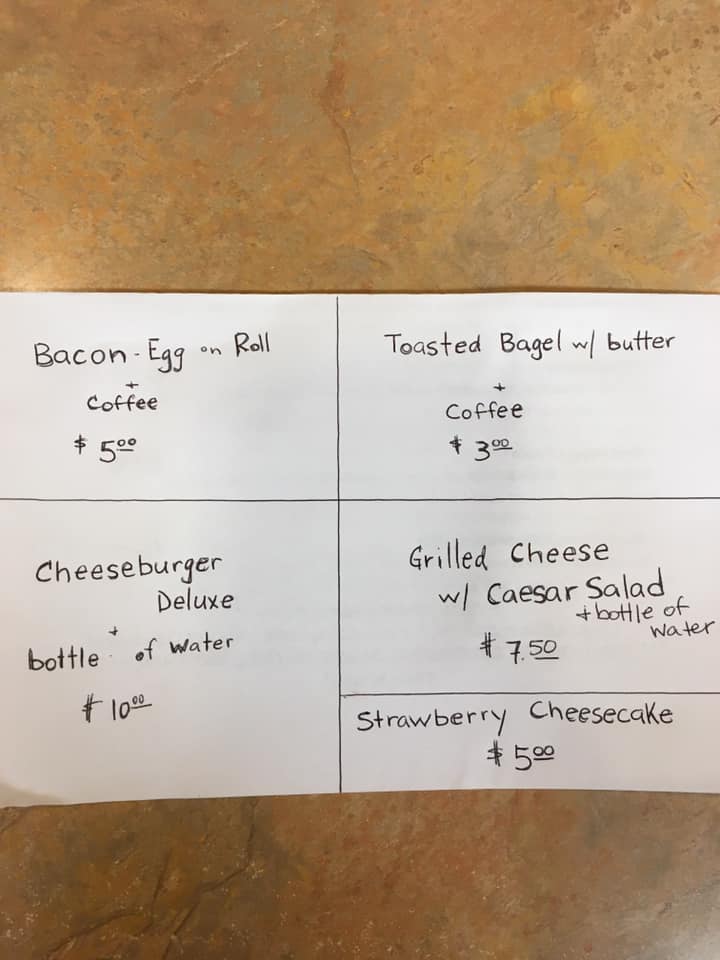 Bacon-Egg on Roll
+
Coffee
$ 5.00
Toasted Bagel w/ butter
+
Coffee
$ 3.00
Cheeseburger
Deluxe
+
bottle of water
$ 10.00
Grilled Cheese
w/ Caesar Salad
+ bottle of
water
$ 7.50
Strawberry Cheesecake
$ 5.00